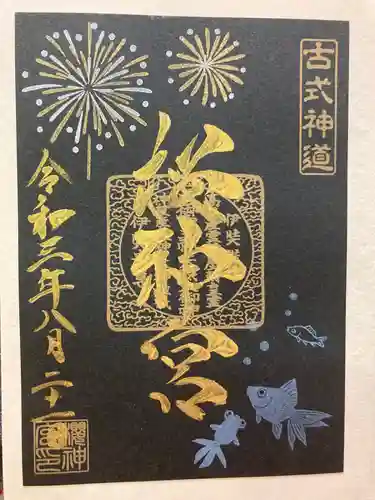 古式神道
桜神宮
令和三年八月二十一
櫻神
宮印